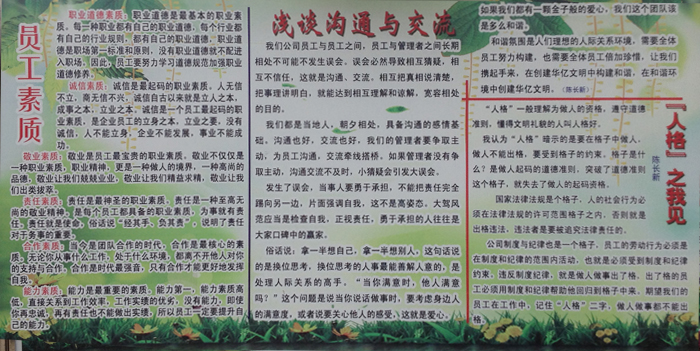 员工素质
职业道德素质：职业道德是最基本的职业素
质。每一种职业都有自己的职业道德，每个行业都
有自己的行业规则，都有自己的职业道德，职业道
德是职场第一标准和原则，没有职业道德就不配进
入职场，因此，员工要努力学习道德规范加强职业
道德修养。
诚信素质：诚信是最起码的职业素质。人无信
不立，商无信不兴，诚信自古以来就是立人之本、
成事之本，立业之本。诚信是一个员工最起码的职
业素质，是企业员工的立身之本，立业之要，没有
诚信，人不能立身，企业不能发展，事业不能成
功。
敬业素质：敬业是员工最宝贵的职业素质。敬业不仅仅是
一种职业素质，职业精神，更是一种做人的境界，一种高尚的
品德，敬业让我们兢兢业业，敬业让我们精益求精，敬业让我
们出类拔萃。
责任素质：责任是最神圣的职业素质。责任是一种至高无
尚的敬业精神，是每个员工都具备的职业素质，为事就有责
任，责任就是使命。俗话说“经其手，负其责”，说明了责任
对于务事的重要。
合作素质：当今是团队合作的时代，合作是最核心的素
质，无论你从事什么工作，处于什么环境，都离不开他人对你
的支持与合作，合作是时代最强音，只有合作才能更好地发挥
自我。
能力素质：能力是最重要的素质，能力第一，能力素质高
低，直接关系到工作效率，工作实绩的优劣，没有能力，即使
你再忠诚，再有责任也不能做出实绩，所以员工一定要提升自
己的能力。
浅谈沟通与交流
我们公司员工与员工之间，员工与管理者之间长期
相处不可能不发生误会。误会必然导致相互猜疑，相
互不信任，这就是沟通、交流。相互把真相说清楚，
把事理讲明白，就能达到相互理解和谅解，宽容相处
的目的。
我们都是当地人，朝夕相处，具备沟通的感情基
础。沟通也好，交流也好，我们的管理者要争取主
动，为员工沟通，交流牵线搭桥。如果管理者没有争
取主动，沟通交流不及时，小猜疑会引发大误会。
发生了误会，当事人要勇于承担，不能把责任完全
踢向另一边，片面强调自我，这不是高姿态。大驾风
范应当是检查自我，正视责任，勇于承担的人往往是
大家口碑中的赢家。
俗话说：拿一半想自己，拿一半想别人，这句话说
的是换位思考，换位思考的人事最能善解人意的，是
处理人际关系的高手。“当你满意时，他人满意
吗？”这个问题是说当你说话做事时，要考虑身边人
的满意度，或者说要关心他人的感受，这就是爱心。
如果我们都有一颗金子般的爱心，我们这个团队该
是多么和谐。
和谐氛围是人们理想的人际关系环境，需要全体
员工努力构建，也需要全体员工倍加珍惜，让我们
携起手来，在创建华亿文明中构建和谐，在和谐环
境中创建华亿文明。（陈长新）
『人格』之我见
陈长新
“人格”一般理解为做人的资格，遵守道德
准则，懂得文明礼貌的人叫人格好。
我认为“人格”暗示的是要在格子中做人，
做人不能出格，要受到格子的约束。格子是什
么？是做人起码的道德准则，突破了道德准则
这个格子，就失去了做人的起码资格。
国家法律法规是个格子，人的社会行为必
须在法律法规的许可范围格子之内，否则就是
出格违法，违法者是要被追究法律责任的。
公司制度与纪律也是一个格子，员工的劳动行为必须是
在制度和纪律的范围内活动，也就是必须受到制度和纪律
约束，违反制度纪律，就是做人做事出了格，出了格的员
工必须用制度和纪律帮助他回归到格子中来，期望我们的
员工在工作中，记住“人格”二字，做人做事都不能出
格。